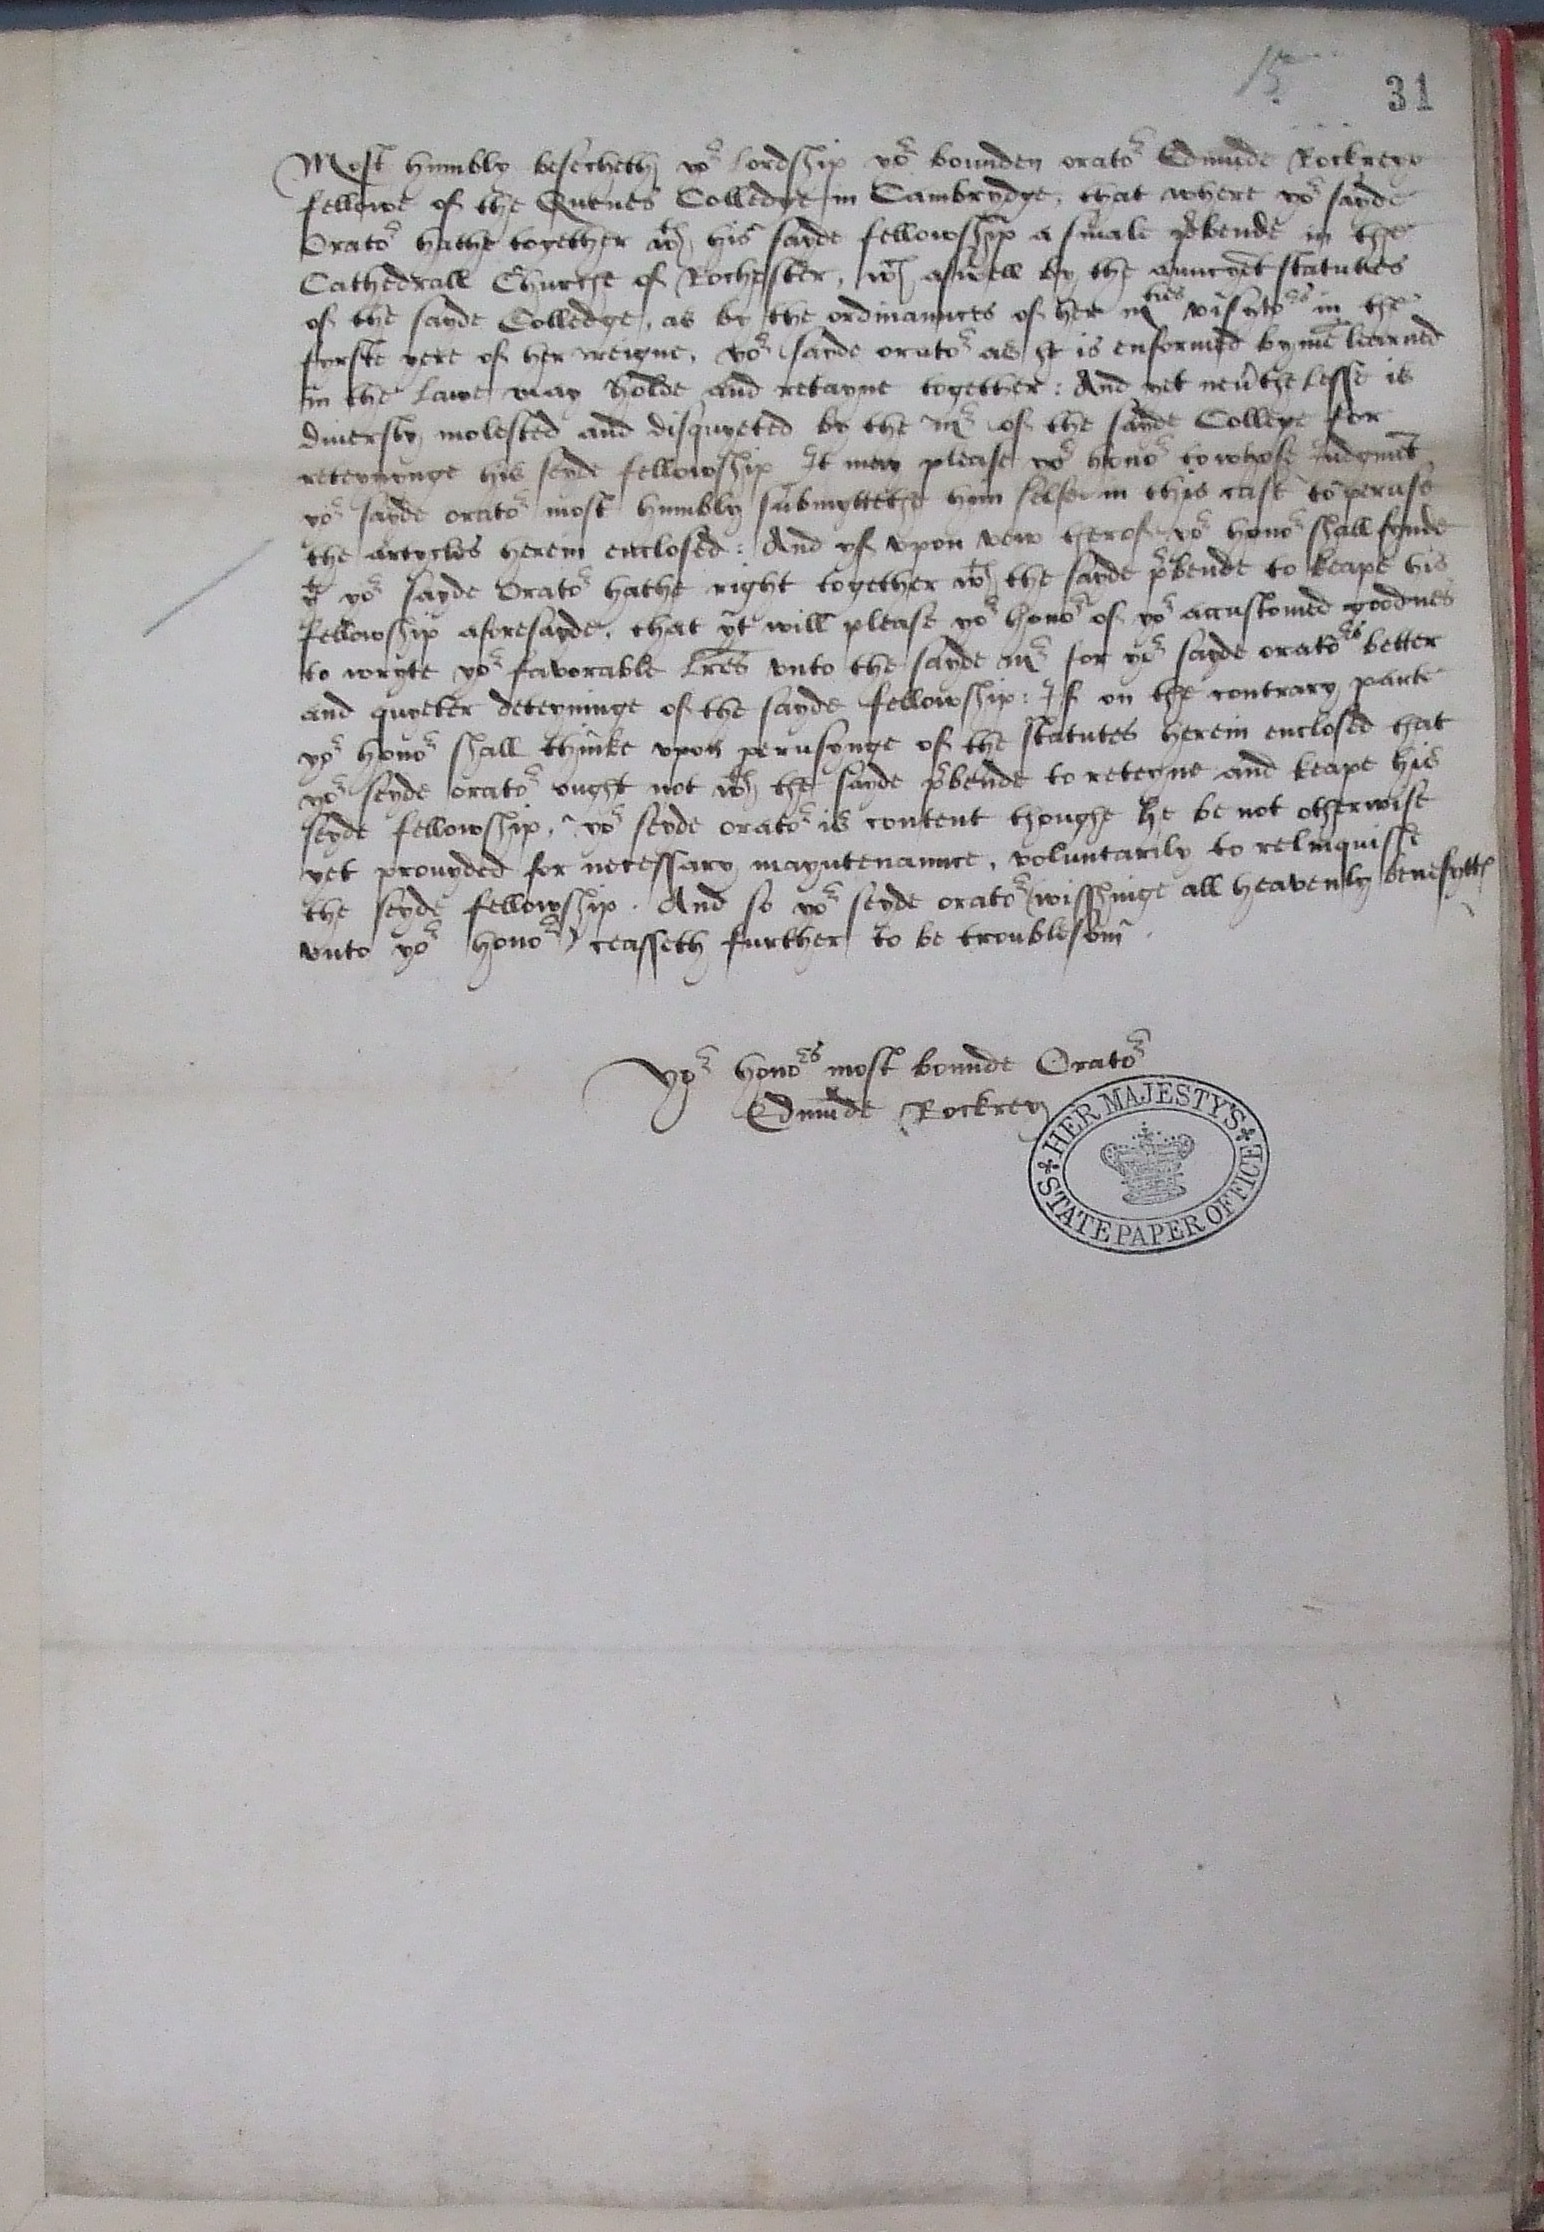 15
31
Most humbly besecheth yor Lordship yor bounden orator Edmūde Rockreye
fellowe of the Quenes Colledge in Cambrydge, that where yor sayde
Orator hathe together wth his sayde fellowship a smale p̄bende in the
Cathedrall Churche of Rochester, wch aswell by the auncyēt statutes
of the sayde Colledge, as by the ordinaunces of her mties visytors in the
fyrste yere of her reigne, yor sayde orator as it is enformed by mē learned
in the Lawe may holde and retayne together: And yet neūthelesse is
diuersly molested and disquyeted by the mr of the sayde College for
reteynynge his seyde fellowship It may please yor honor to whose Iudgmēt
yor sayde orator most humbly submyttethe hym selfe in this case to peruse
the artycles herein enclosed: And yf vpon vew therof yor honor shall fynde
yt yor sayde Orator hathe right together wth the sayde p̄bende to keape his
fellowship aforesayde, that yt will please yor honor of yor accustomed goodnes
to wryte yor favorable Lr̄es vnto the sayde mr for yor sayde orators better
and quyeter deteyninge of the sayde fellowship: If on the contrary parte
yor honor shall thinke vpon perusynge of the statutes herein enclosed that
yor seyde orator ought not wth the sayde p̄bende to reteyne and keape his
seyde fellowship, yor seyde orator is content thoughe he be not otherwise
yet prouyded for necessary mayntenaunce, voluntarily to relinquisse
the seyde fellowship. And so yor seyde orator (wisshinge all heavenly benefytts
vnto yor honor) ceasseth further to be troublesom̄.
Yor honors most bounde Orator
Edmūde Rockrey
HER MAJESTY'S
STATE PAPER OFFICE